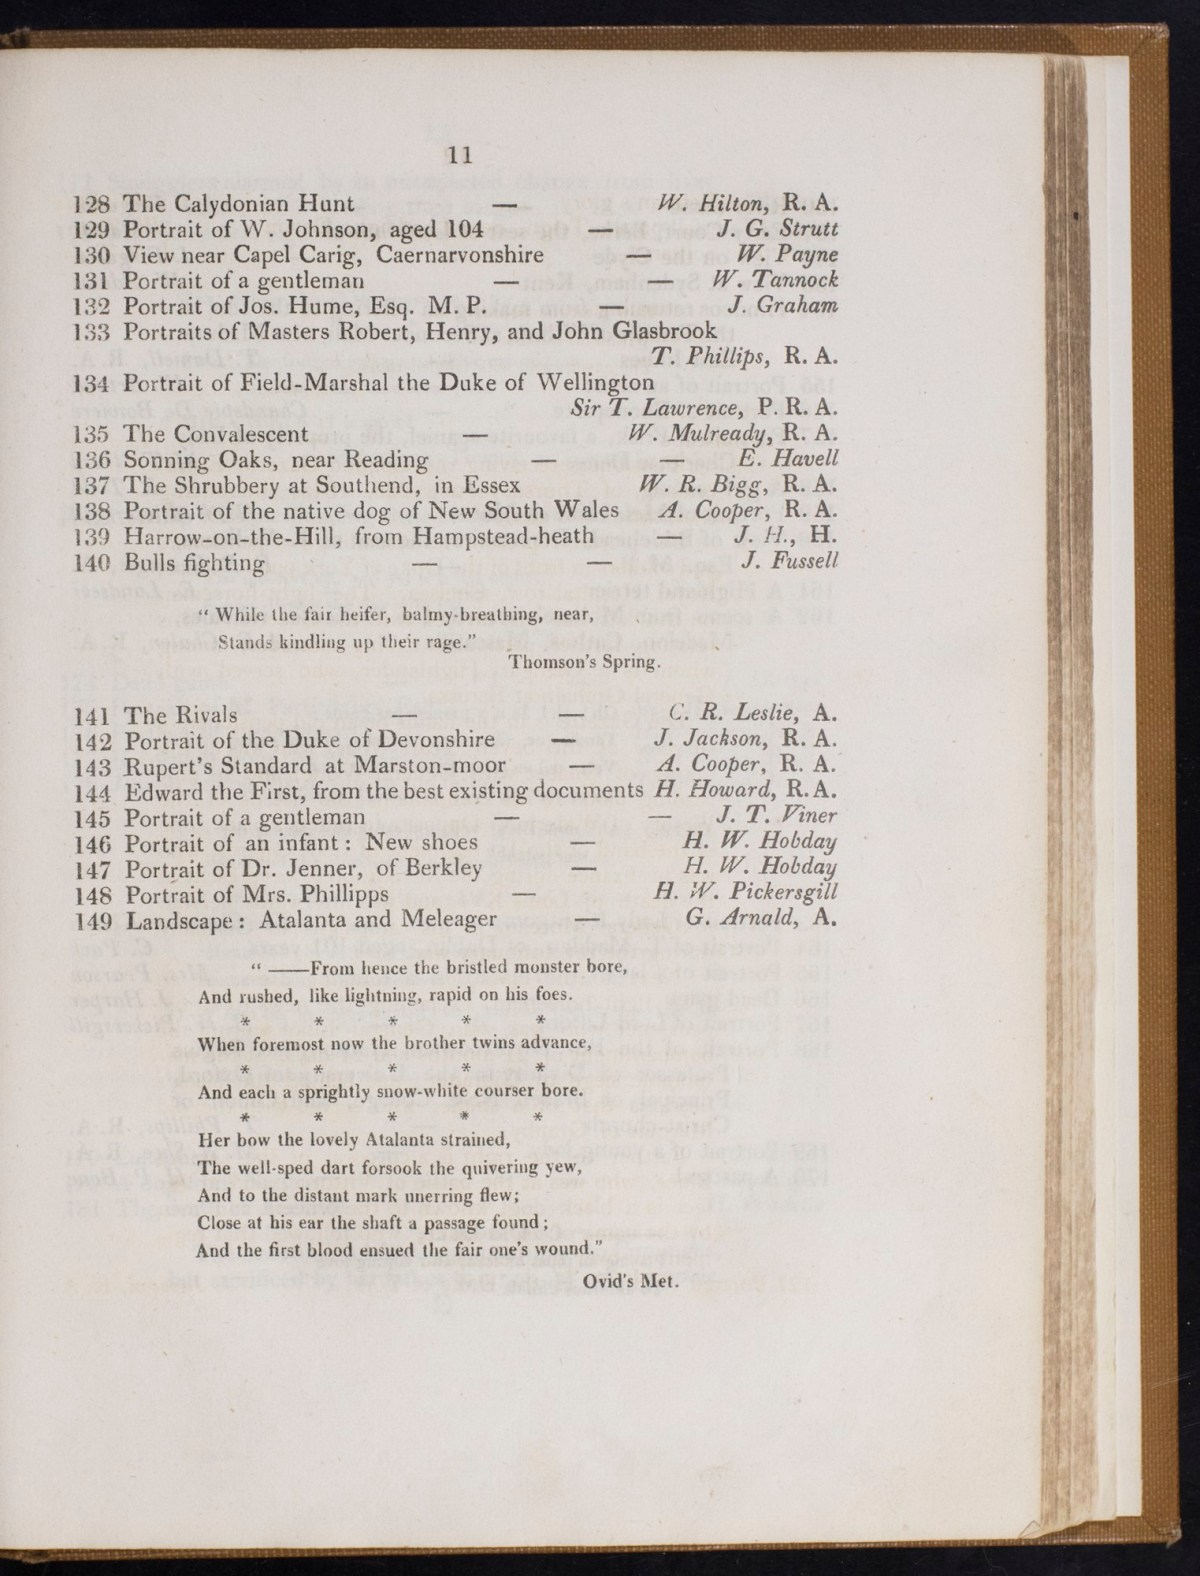 11
128 The Calydonian Hunt — W. Hilton, R. A.
129 Portrait of W. Johnson, aged 104 — J. G. Strutt
130 View near Capel Carig, Caernarvonshire — W. Payne
131 Portrait of a gentleman — — W. Tannock
132 Portrait of Jos. Hume, Esq. M. P. — J. Graham
133 Portraits of Masters Robert, Henry, and John Glasbrook
T. Phillips, R. A.
134 Portrait of Field-Marshal the Duke of Wellington
Sir T. Lawrence, P. R. A.
135 The Convalescent — W. Mulready, R. A.
136 Sonning Oaks, near Reading — — E. Havell
137 The Shrubbery at Southend, in Essex W. R. Bigg, R. A.
138 Portrait of the native dog of New South Wales A. Cooper, R. A.
139 Harrow-on-the-Hill, from Hampstead-heath — J. H., H.
140 Bulls fighting — — J. Fussell
“ While the fair heifer, balmy-breathing, near,
Stands kindling up their rage.”
Thomson's Spring.
141 The Rivals — — C. R. Leslie, A.
142 Portrait of the Duke of Devonshire — J. Jackson, R. A.
143 Rupert's Standard at Marston-moor — A. Cooper, R. A.
144 Edward the First, from the best existing documents H. Howard, R. A.
145 Portrait of a gentleman — — J. T. Viner
146 Portrait of an infant : New shoes — H. W. Hobday
147 Portrait of Dr. Jenner, of Berkley — H. W. Hobday
148 Portrait of Mrs. Phillipps — H. W. Pickersgill
149 Landscape : Atalanta and Meleager — G. Arnald, A.
“ ——From hence the bristled monster bore,
And rushed, like lightning, rapid on his foes.
* * * * *
When foremost now the brother twins advance,
* * * * *
And each a sprightly snow-white courser bore.
* * * * *
Her bow the lovely Atalanta strained,
The well-sped dart forsook the quivering yew,
And to the distant mark unerring flew;
Close at his ear the shaft a passage found ;
And the first blood ensued the fair one's wound.”
Ovid's Met.